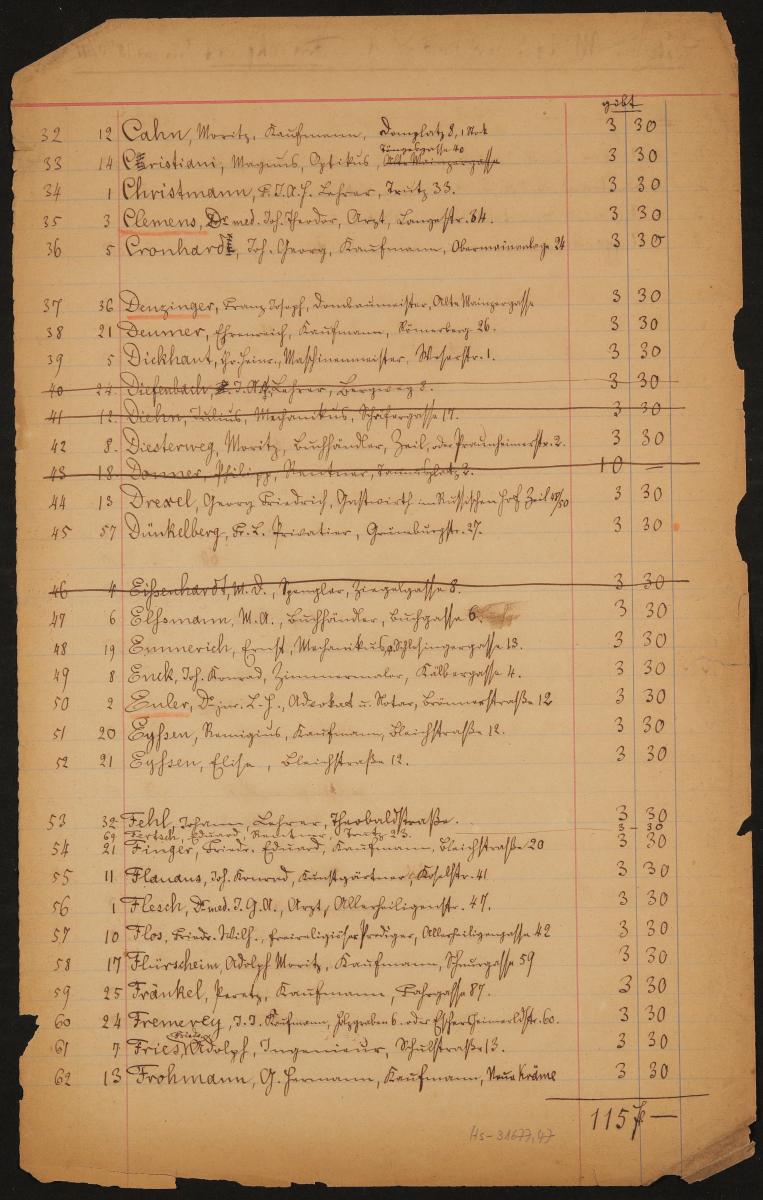 gibt
32 12 Cahn, Moritz, Kaufmann, Domplatz 8, 1 Stock 3 30
Töngesgasse 40
33 14 Christiani, Magnus, Optikus, Alte Mainzergasse 3 30
34 1 Christmann, F. J. A. H. Lehrer, Trutz 33. 3 30
35 3 Clemens, Dr. med. Joh. Theodor, Arzt, Langestr. 64. 3 30
36 5 Cronhardt, Joh. Georg, Kaufmann, Obermainanlage 24 3 30
37 36 Denzinger, Franz Joseph, Dombaumeister, Alte Mainzergasse 3 30
38 21 Deumer, Ehrenreich, Kaufmann, Römerberg 26. 3 30
39 5 Dickhaut, Gr. Heinr., Maschinenmeister, Weserstr. 1. 3 30
40 24 Diefenbach, J. Lehrer, Bergweg 8. 3 30
41 12 Diehn, Julius, Mechanikus, Schäfergasse 17. 3 30
42 8. Diesterweg, Moritz, Buchhändler, Zeil, oder Praunheimerstr. 2. 3 30
43 18 Donner, Philipp, Rentner, Taunusplatz 2. 10 —
44 13 Drexel, Georg Friedrich, Gastwirth im Russischen Hof Zeil 48/50 3 30
45 57 Dünkelberg, Fr. L. Privatier, Grüneburgstr. 27. 3 30
46 4 Eissenhardt, M. D., Spengler, Ziegelgasse 8. 3 30
47 6 Elssmann, M. A., Buchhändler, Buchgasse 6. 3 30
48 19 Emmerich, Ernst, Mechanikus, Schlesingergasse 13. 3 30
49 8 Enck, Joh. Konrad, Zimmermaler, Kälbergasse 4. 3 30
50 2 Euler, Dr. jur. L. H., Advokat u. Notar, Brönnerstraße 12 3 30
51 20 Eyssen, Remigius, Kaufmann, Bleichstraße 12. 3 30
52 21 Eyssen, Elise, Bleichstraße 12. 3 30
53 32 Fehl, Johann, Lehrer, Theobaldstraße. 3 30
69 Fertsch, Eduard, Rentner, Trutz 23. 3 - 30
54 21 Finger, Friedr. Eduard, Kaufmann, Bleichstraße 20 3 30
55 11 Flauaus, Joh. Konrad, Kunstgärtner, Koselstr. 41 3 30
56 1 Flesch, Dr. med. J. G. A., Arzt, Allerheiligenstr. 47. 3 30
57 10 Flos, Friedr. Wilh., freireligiöser Prediger, Allerheiligengasse 42 3 30
58 17 Flürscheim, Adolph Moritz, Kaufmann, Schnurgasse 59 3 30
59 25 Fränkel, Peretz, Kaufmann, Fahrgasse 87. 3 30
60 24 Fremerey, J. J. Kaufmann, Holzgraben 6. oder Eschersheimerldstr. 60. 3 30
Friedr.
61 7 Fries, Adolph, Ingenieur, Schulstraße 13. 3 30
62 13 Frohmann, G. Hermann, Kaufmann, Neue Kräme 3 30
115 f —
Hs-31677,47